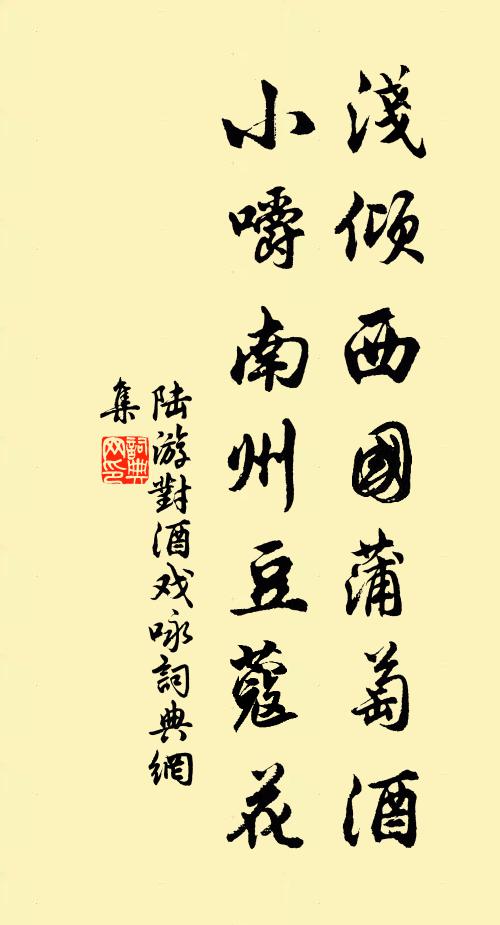 淺傾西國蒲萄酒
小嚼南州豆蔻花
陆游對酒戏咏詞典網
集
詞典
网印